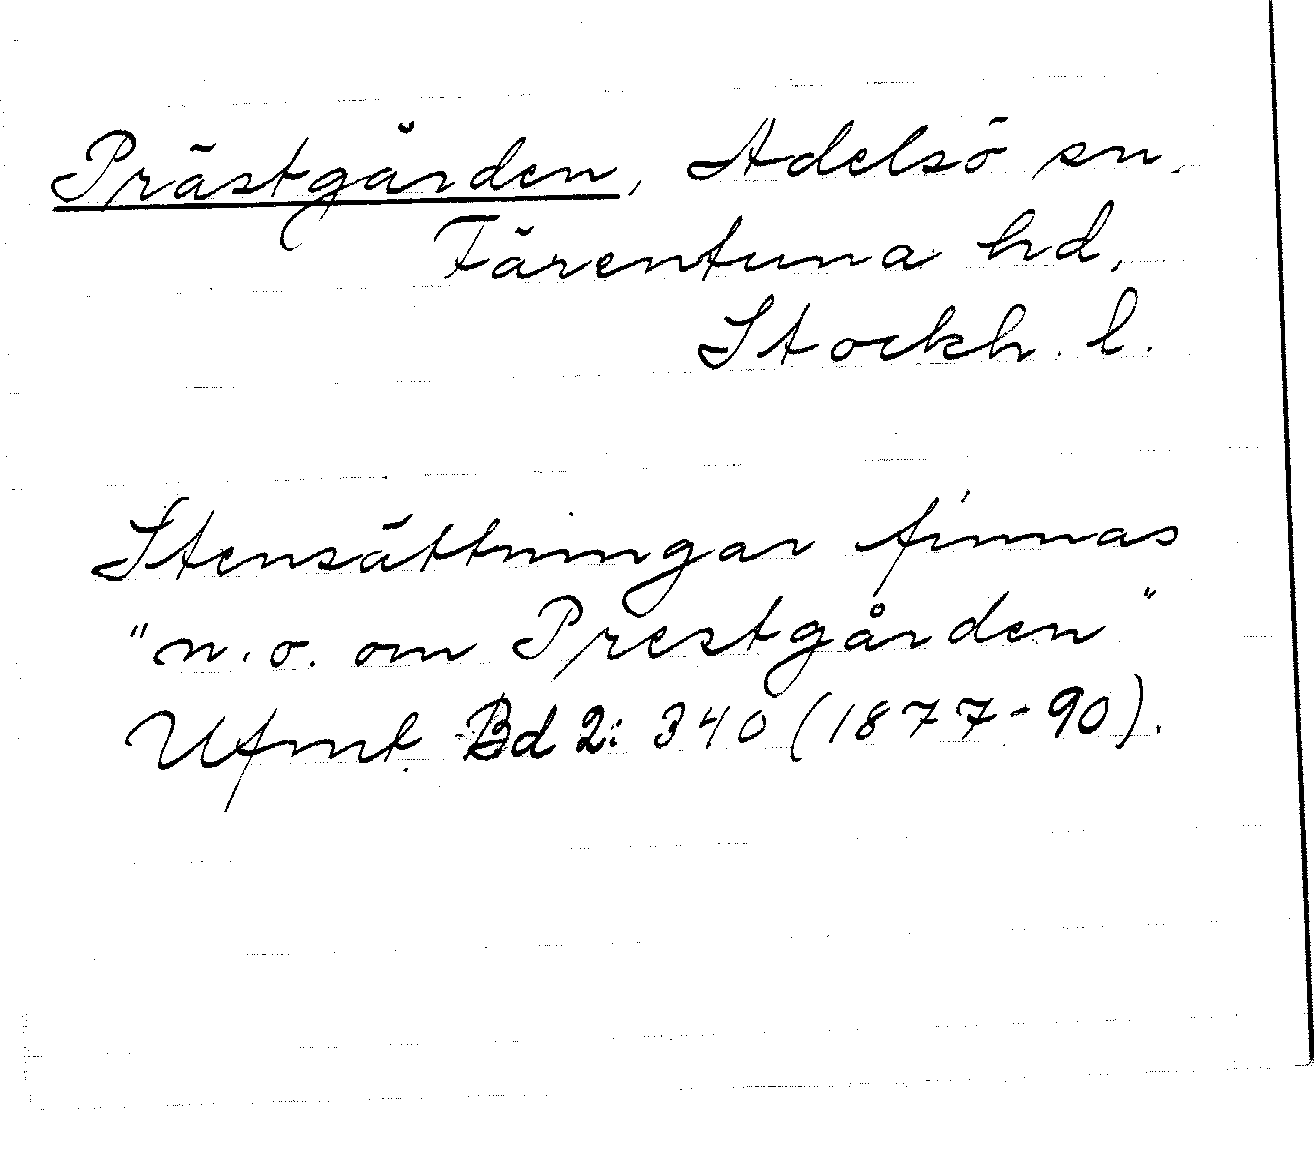 Prästgården, Adelsö sn,
Färentuna hd,
Stockh. l.
Stensättningar finnas
"n.o. om Prestgården"
Ufmt Bd 2: 340 (1877-90).